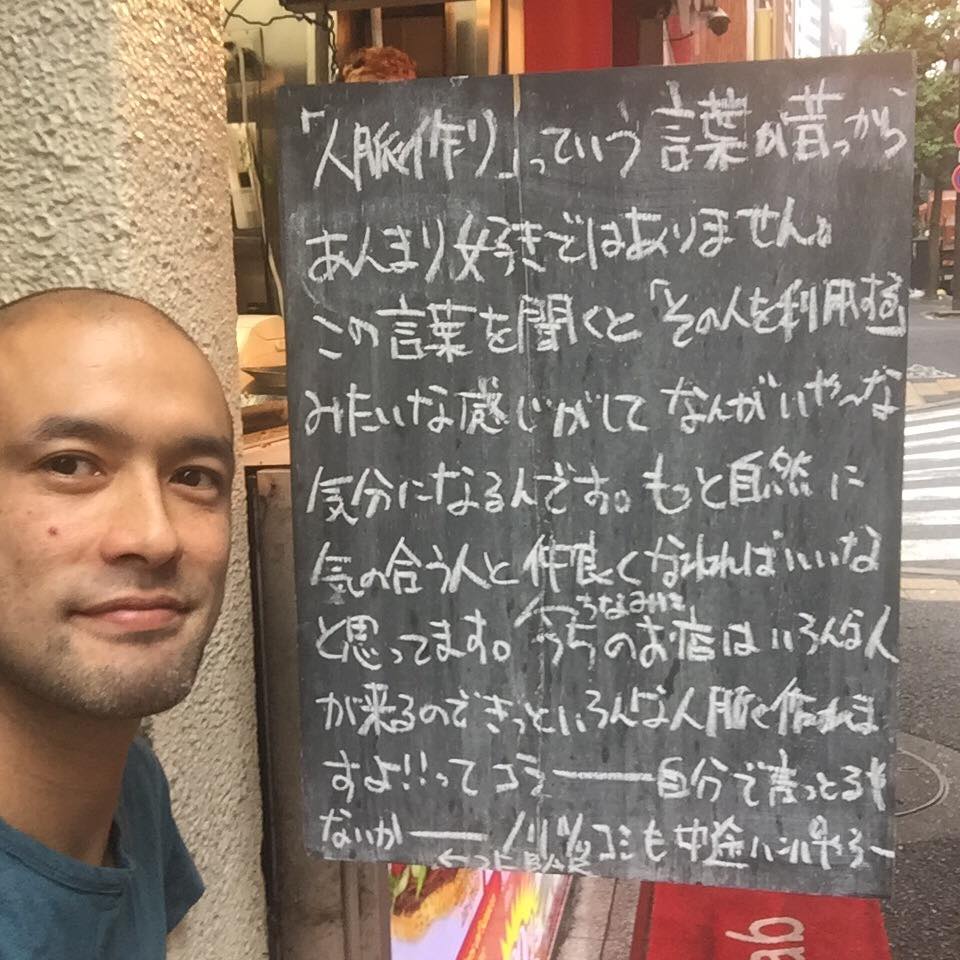 「人脈作り」っていう言葉が昔っから
あんまり好きではありません。
この言葉を聞くと「その人を利用する」
みたいな感じがしてなんかいや〜な
気分になるんです。もっと自然に
気の合う人と仲良くなれればいいな
ちなみに
と思ってます。うちのお店はいろんな人
が来るのできっといろんな人脈を作れま
すよ!!ってコラ━━━自分で言っとるや
ないか━━ノリツッコミも中途ハンパやろー
ab